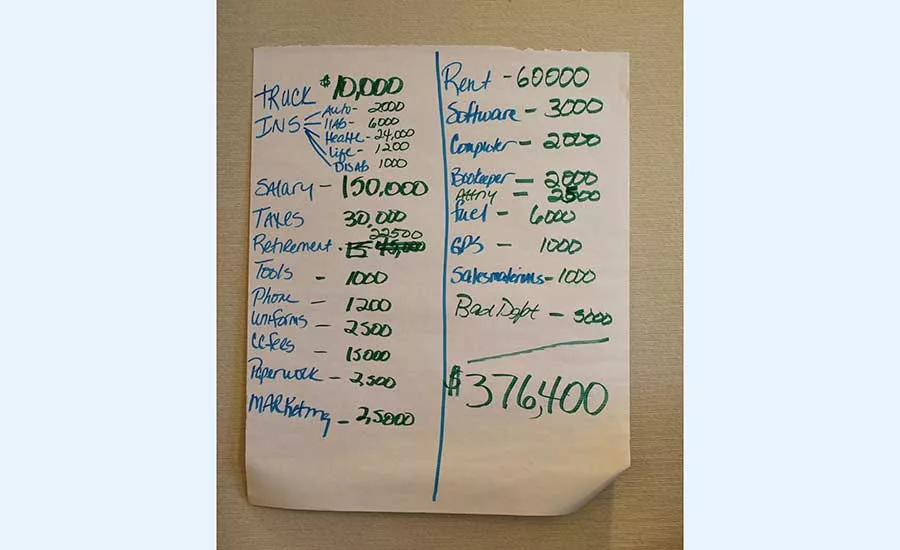 TRUCK $10,000
INS
Auto- 2000
Liab- 6000
Health- 24,000
Life- 1200
DisAb 1000
SAlAry - 150,000
TAXes 30,000
22500
Retirement - 45,000
Tools - 1000
Phone - 1200
Uniforms - 2500
CC fees - 15000
Paperwork - 2,500
MARKeting - 2,5000
Rent - 60000
Software - 3000
Computer - 2000
Bookeeper - 2000
Attny = 2500
fuel - 6000
GPS - 1000
Salesmaterials - 1000
Bad Dept - 5000
$376,400